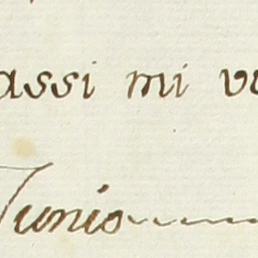 assi mi ve
Junio